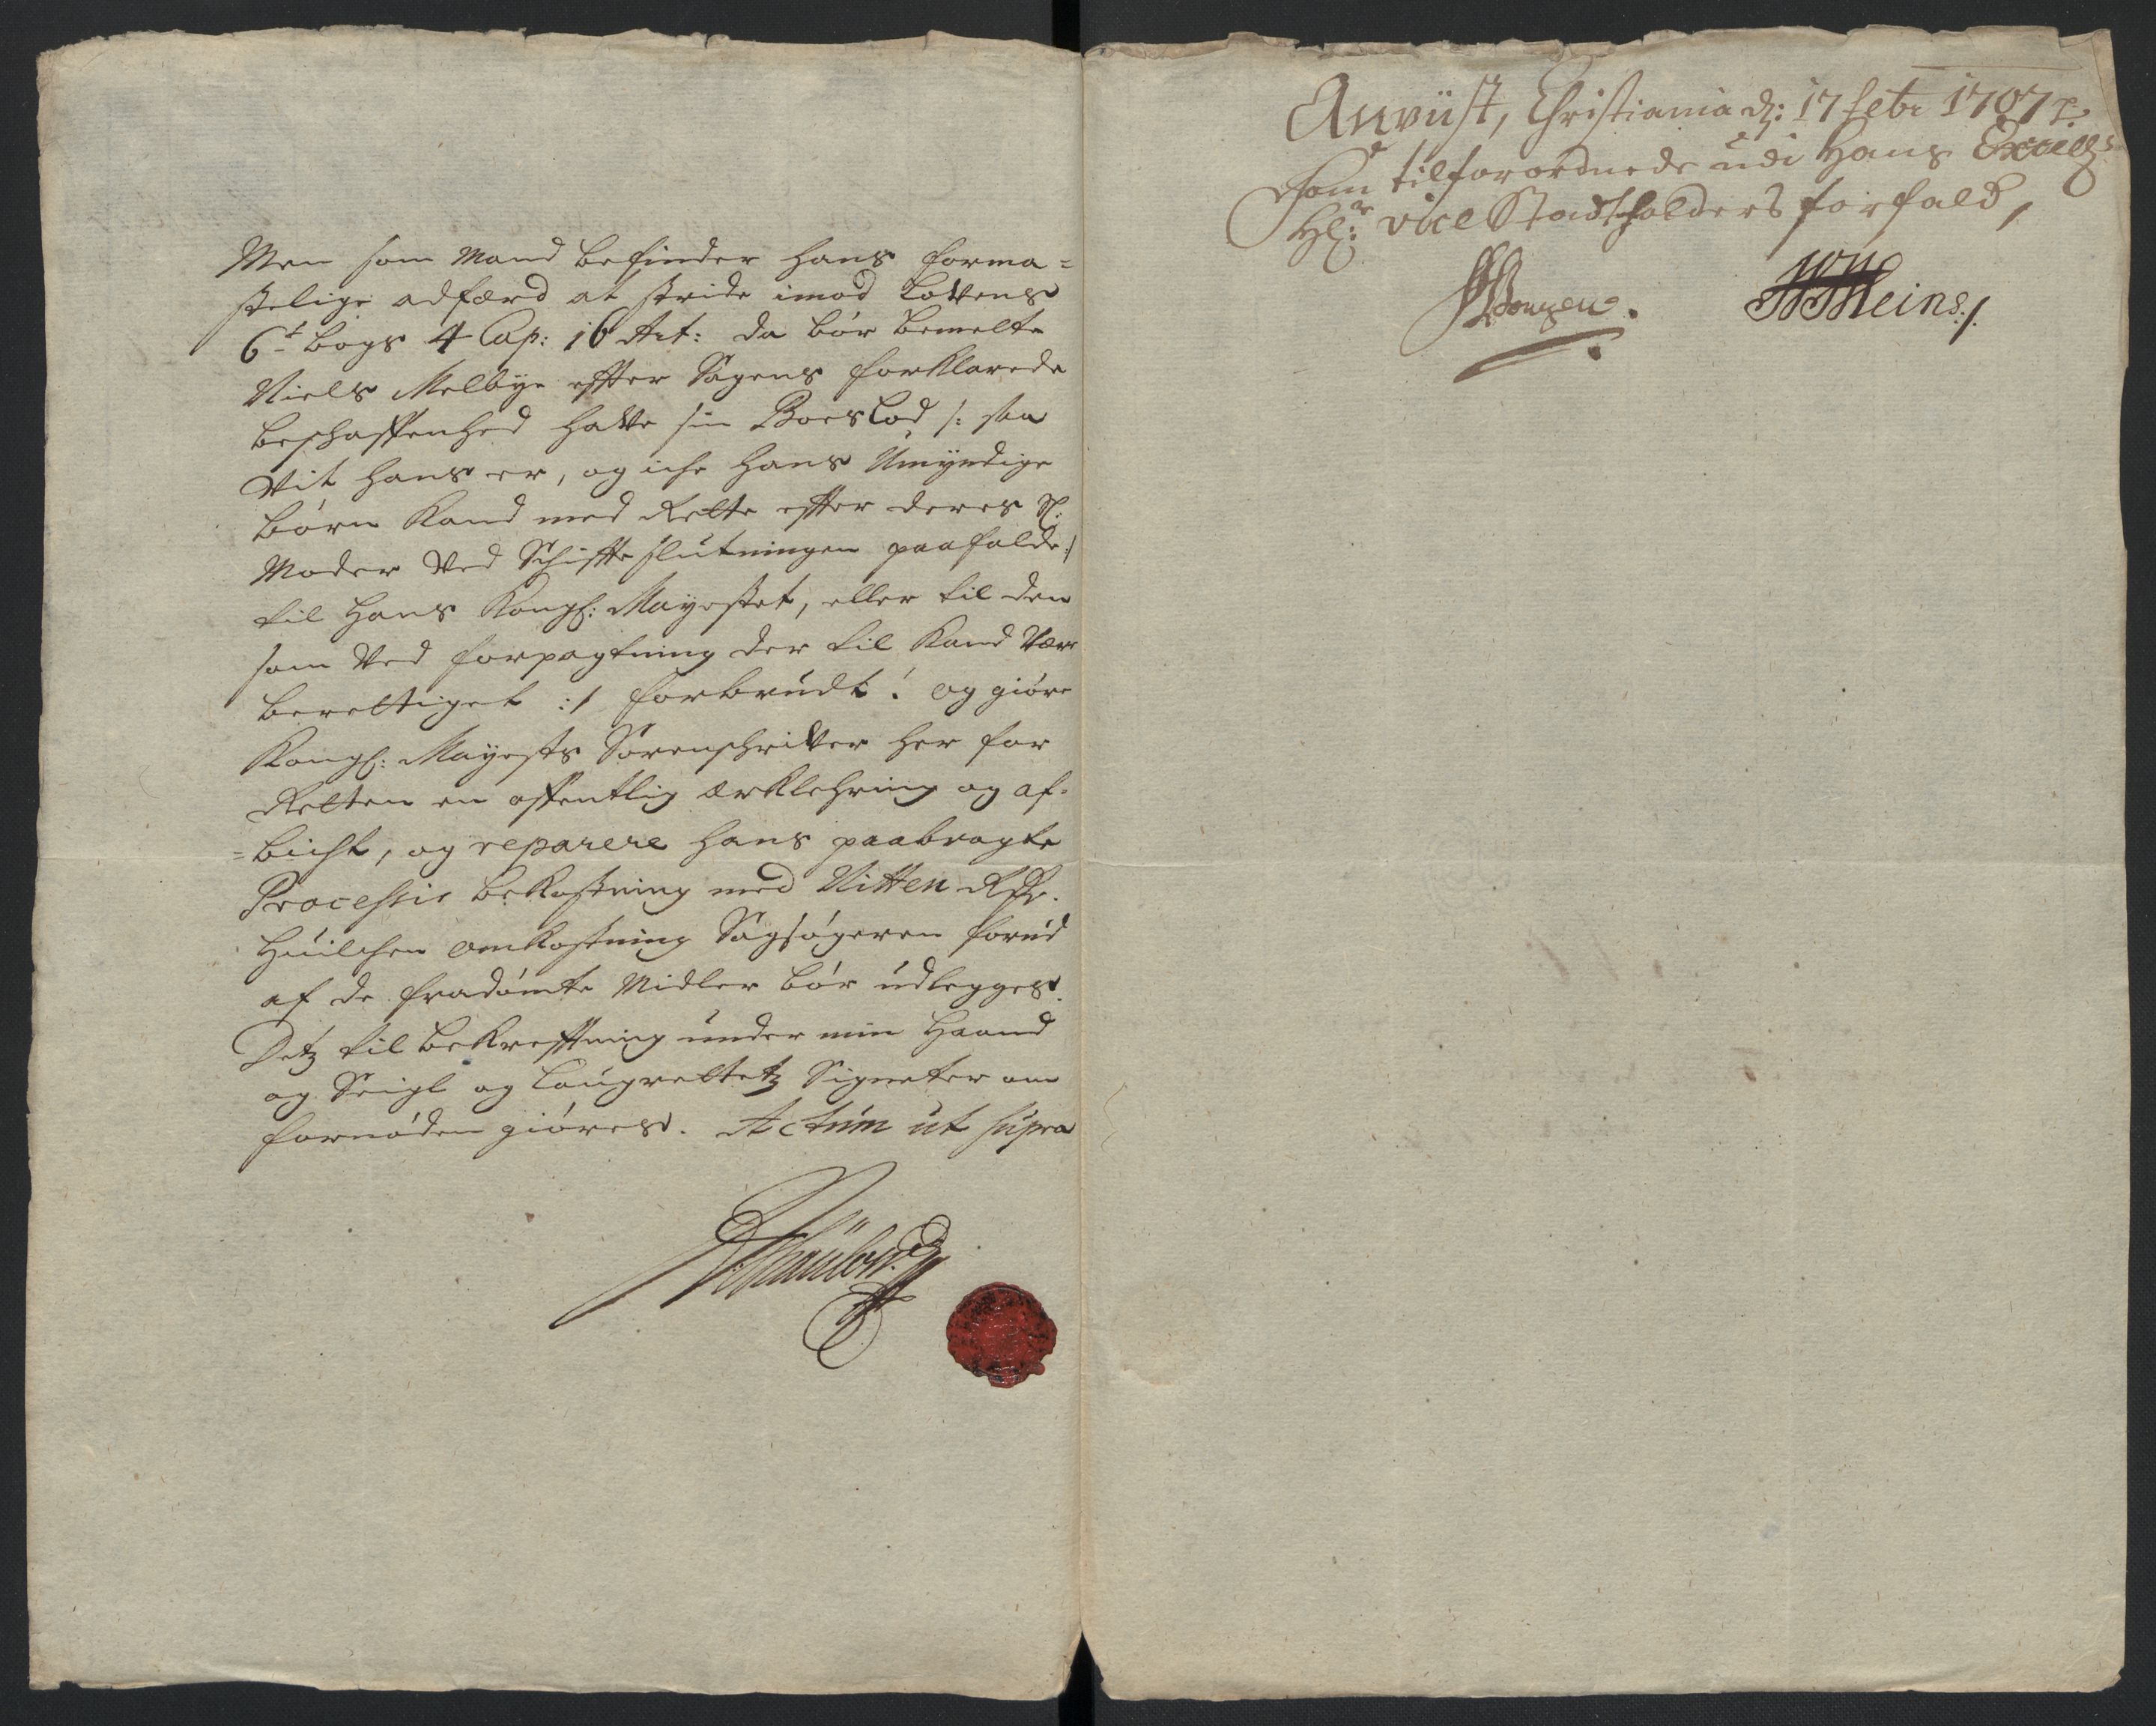 Men som Mand befinder hans forma=
stelige adfærd at stride imod Lovens
6t Bogs 4 Cap: 16 Art: da bór bemelte
Niels Melbye effter Sagens forklarede
beschaffenhed have sin Boeslod /: saa
vit hans er, og iche hans Umyndige
bórn kand med Rette effter deres Sl:
Moder ved Schiffte slutningen paafalde :/
til Hans Kongl: Mayestet, eller til den
som ved forpagtning der til kand være
berettiget :/ forbrudt! og gióre
Kongl: Mayests Sorenschriver her for
Retten en offentlig ærklehring og af=
=bicht, og reparere hans paabragte
Processis bekostning med Nitten Rdr.
Huilchen omkostning Sagsógeren forud
af de fradómte Midler bór udlegges.
Detz til bekrefftning under min Haand
og Seigl og Laugrettetz Signeter om
fornóden gióres. Actum ut supra
Anviist, Christiania d: 17 febr 1707
Som tilforordnede udi Hans Excells
Hr: vice Stadtholders forfald,